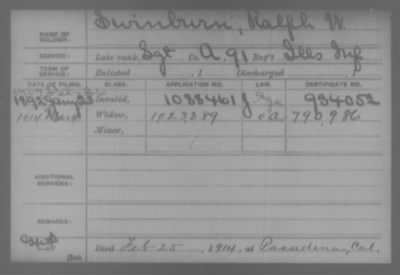 NAME OF SOLDIER: Swinburn, Ralph W.
SERVICE: Late rank, Sgt Co. A, 91 Reg't Ills Inf
TERM OF SERVICE: Enlisted , 1 Discharged , 1
DATE OF FILING. CLASS. APPLICATION NO. LAW. CERTIFICATE NO.
1892 Invalid, 1088461 934052
1914 Widow, 1023389 790986
Minor,
ADDITIONAL SERVICES:
REMARKS:
Died Feb 25, 1914, at Pasadena, Cal.